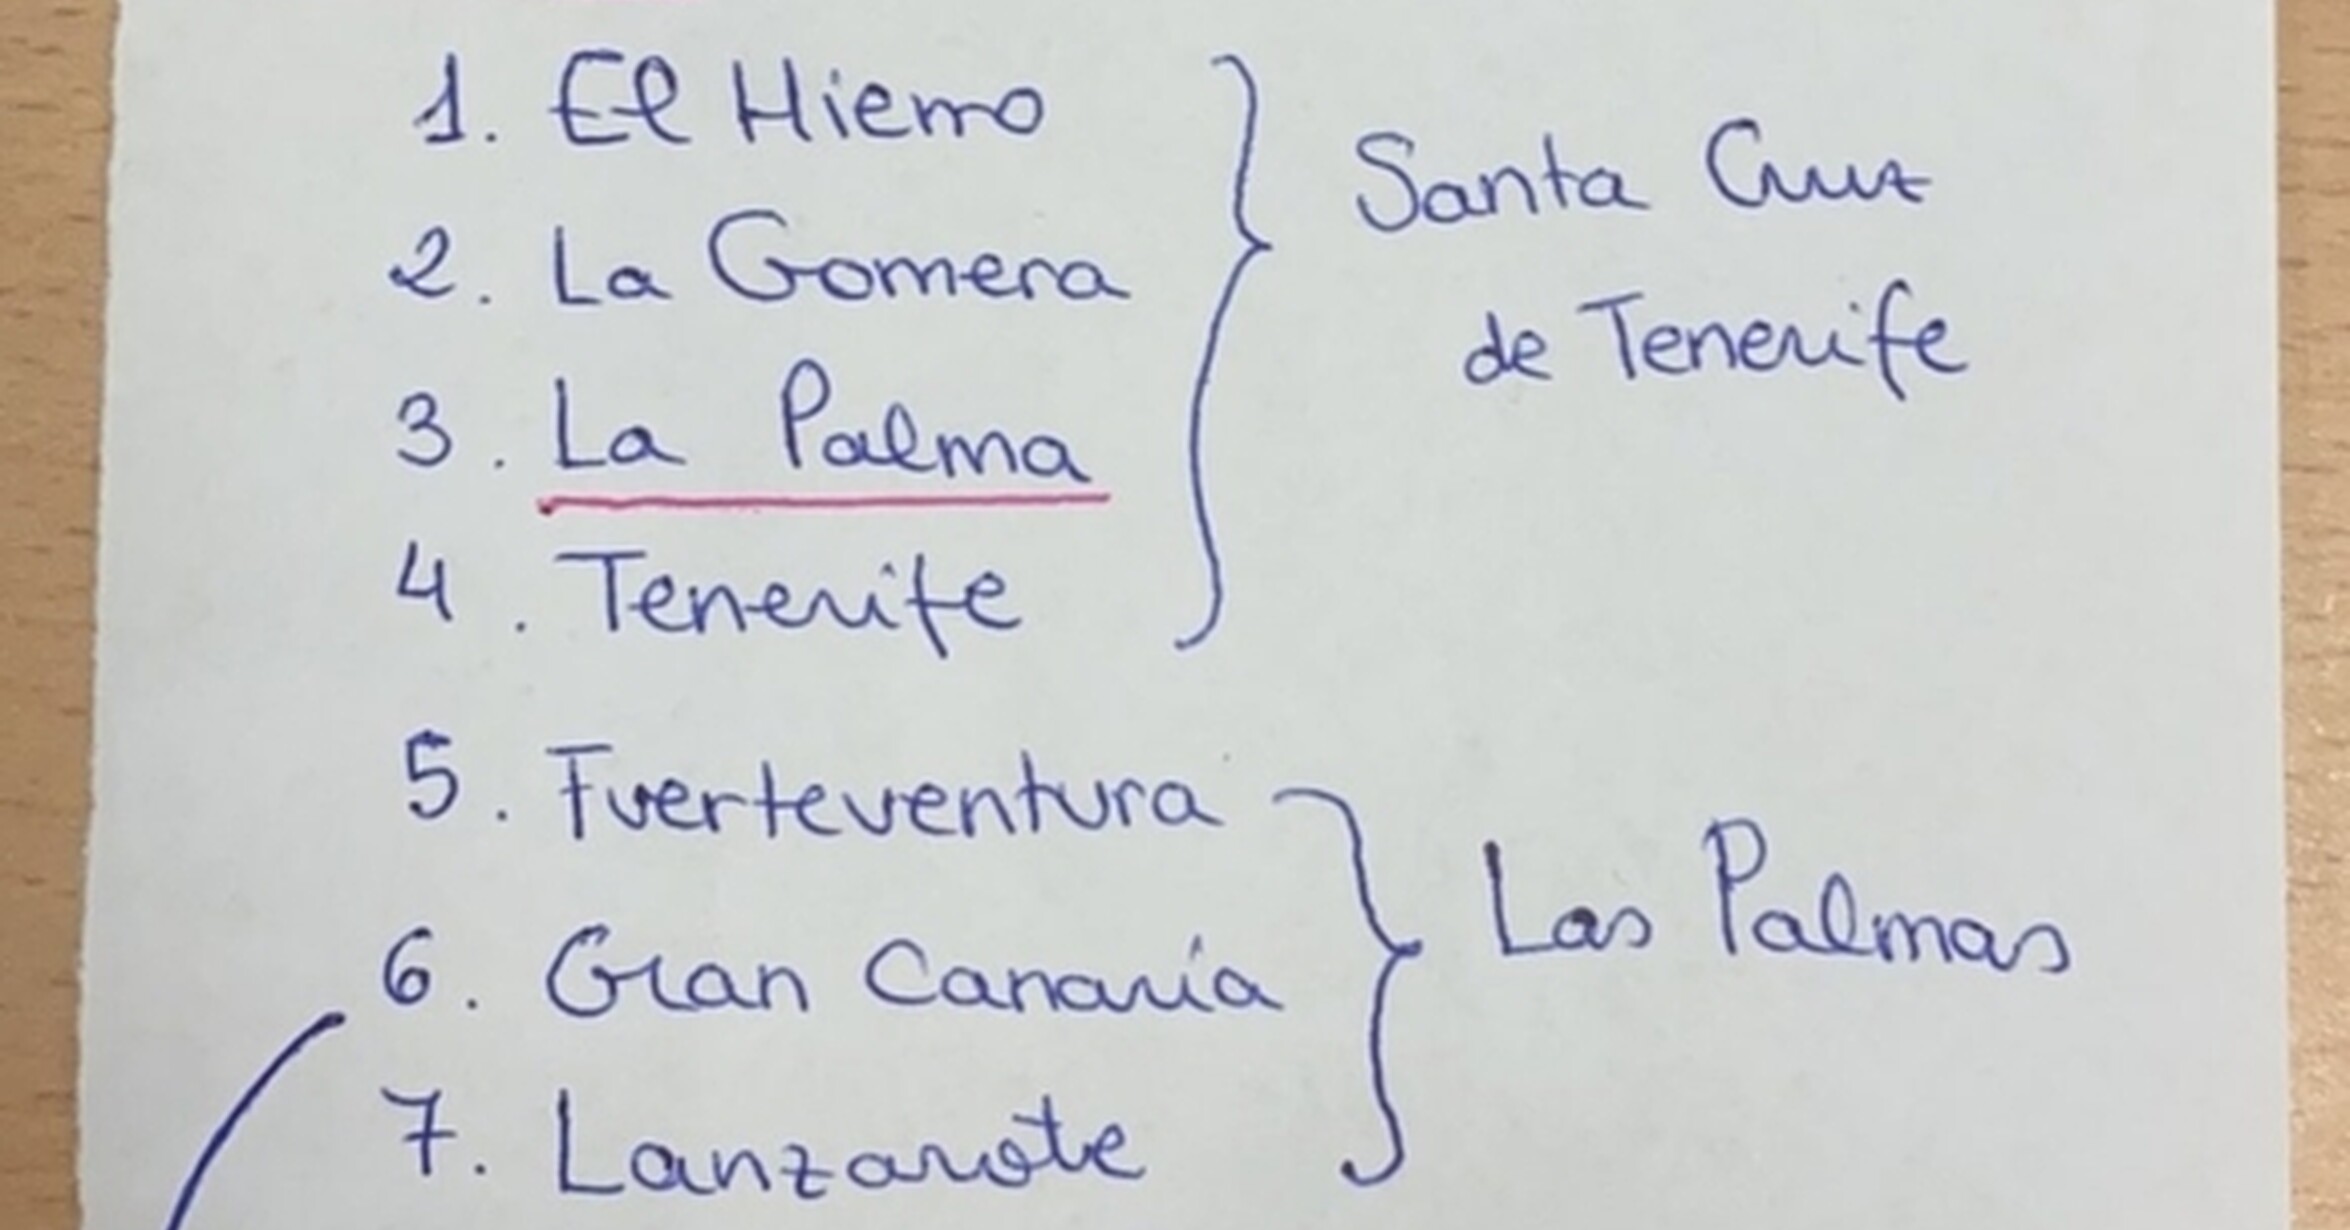 1. El Hierro
2. La Gomera
3. La Palma
4. Tenerife
Santa Cruz
de Tenerife
5. Fuerteventura
6. Gran Canaria
7. Lanzarote
Las Palmas